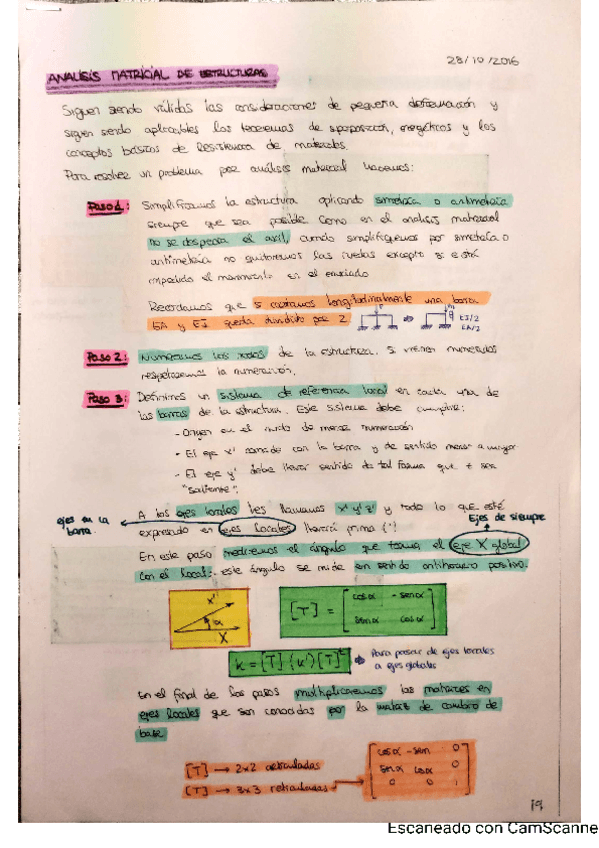 28/10/2016
ANALISIS MATRICIAL DE ESTRUCTURAS
Siguen siendo válidas las consideraciones de pequeña deformación y
siguen siendo aplicables los teoremas de superposición, energéticos y los
conceptos básicos de Resistencia de materiales.
Para resolver un problema por análisis matricial haremos:
Paso 1: Simplificamos la estructura aplicando simetría o antimetría
siempre que sea posible. Como en el análisis matricial
no se desprecia el axil, cuando simplifiquemos por simetría o
antimetría no quitaremos las ruedas excepto si está
impedido el movimiento en el enunciado
Recordamos que si cortamos longitudinalmente una barra
EA y EI queda dividido por 2
EI/2
EA/2
Paso 2: Numeramos los nodos de la estructura. Si vienen numerados
respetaremos la numeración.
Paso 3: Definimos un sistema de referencia local en cada una de
las barras de la estructura. Este sistema debe cumplir:
- Origen en el nudo de menor numeración
- El eje x' coincide con la barra y de sentido menor a mayor
- El eje y' debe llevar sentido de tal forma que z sea
"saliente".
A los ejes locales les llamamos x' y' z' y todo lo que esté
ejes en la
barra.
expresado en ejes locales llevará prima (')
Ejes de siempre
En este paso mediremos el ángulo que forma el eje X global
con el local: este ángulo se mide en sentido antihorario positivo.
x'
α
X
[T] = [cosα -senα
senα cosα]
K = [T] (k') [T]^t
Para pasar de ejes locales
a ejes globales
En el final de los pasos multiplicaremos las matrices en
ejes locales que son conocidas por la matriz de cambio de
base
[T] → 2x2 articuladas
[T] → 3x3 reticuladas →
cosα -sen 0
senα cosα 0
0 0 1
19
Escaneado con CamScanne